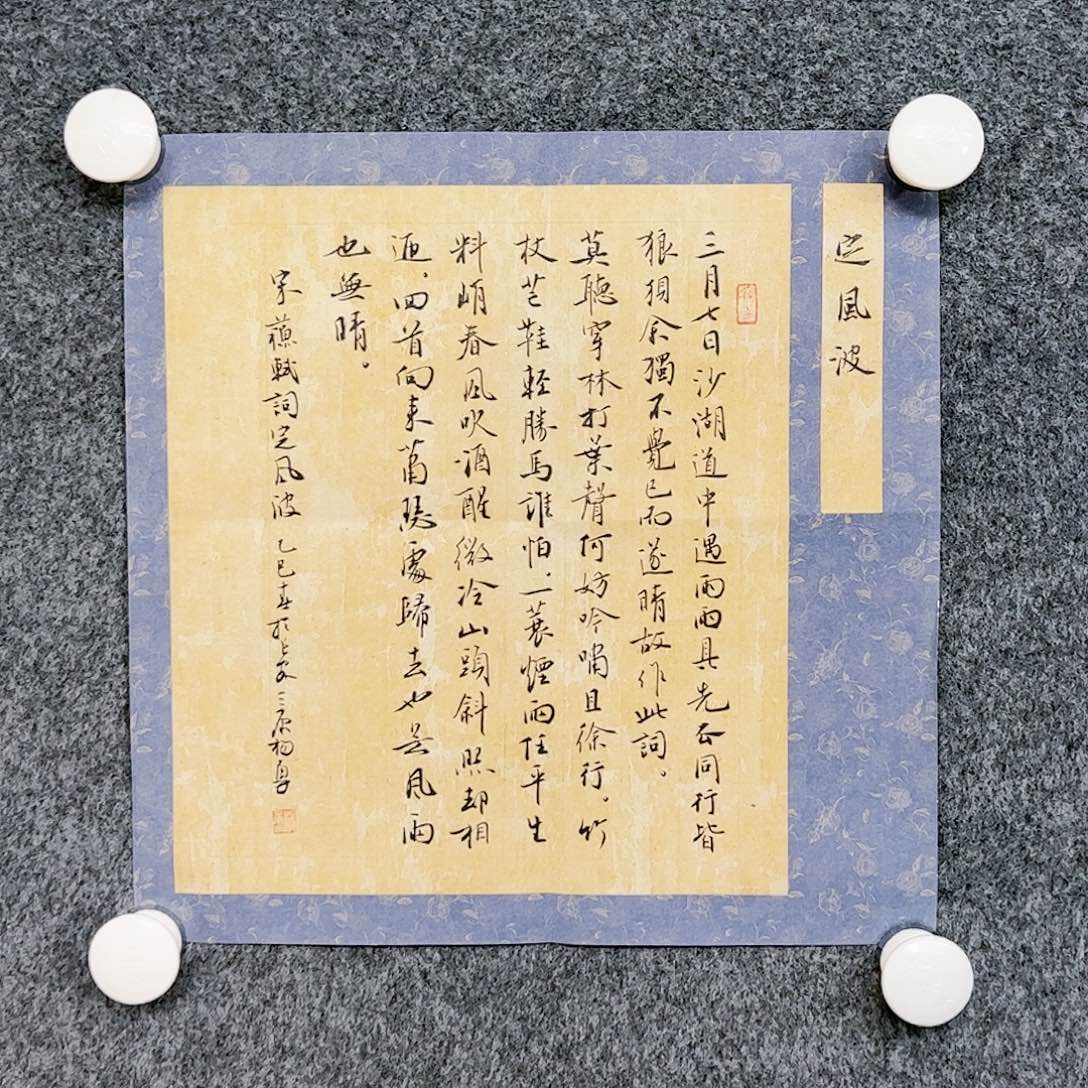 定風波
三月七日沙湖道中遇雨雨具先去同行皆
狼狽余獨不覺已而遂晴故作此詞。
莫聽穿林打葉聲何妨吟嘯且徐行。竹
杖芒鞋輕勝馬誰怕。一蓑煙雨任平生
料峭春風吹酒醒微冷山頭斜照却相
迎。回首向來蕭瑟處歸去也無風雨
也無晴。
宋蘇軾詞定風波 乙巳春於 三原楊